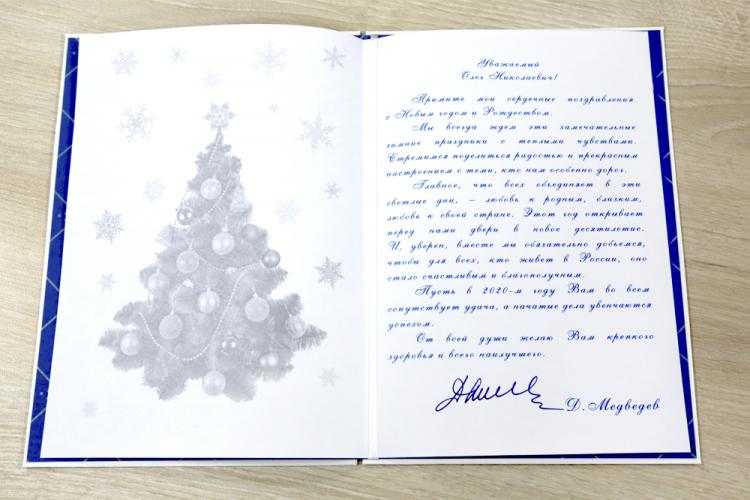 Уважаемый
Олег Николаевич!
Примите мои сердечные поздравления
с Новым годом и Рождеством.
Мы всегда ждем эти замечательные
зимние праздники с теплыми чувствами.
Стремимся поделиться радостью и прекрасным
настроением с теми, кто нам особенно дорог.
Главное, что всех объединяет в эти
светлые дни, – любовь к родным, близким,
любовь к своей стране. Этот год открывает
перед нами двери в новое десятилетие.
И, уверен, вместе мы обязательно добьемся,
чтобы для всех, кто живет в России, оно
стало счастливым и благополучным.
Пусть в 2020-м году Вам во всем
сопутствует удача, а начатые дела увенчаются
успехом.
От всей души желаю Вам крепкого
здоровья и всего наилучшего.
Д. Медведев